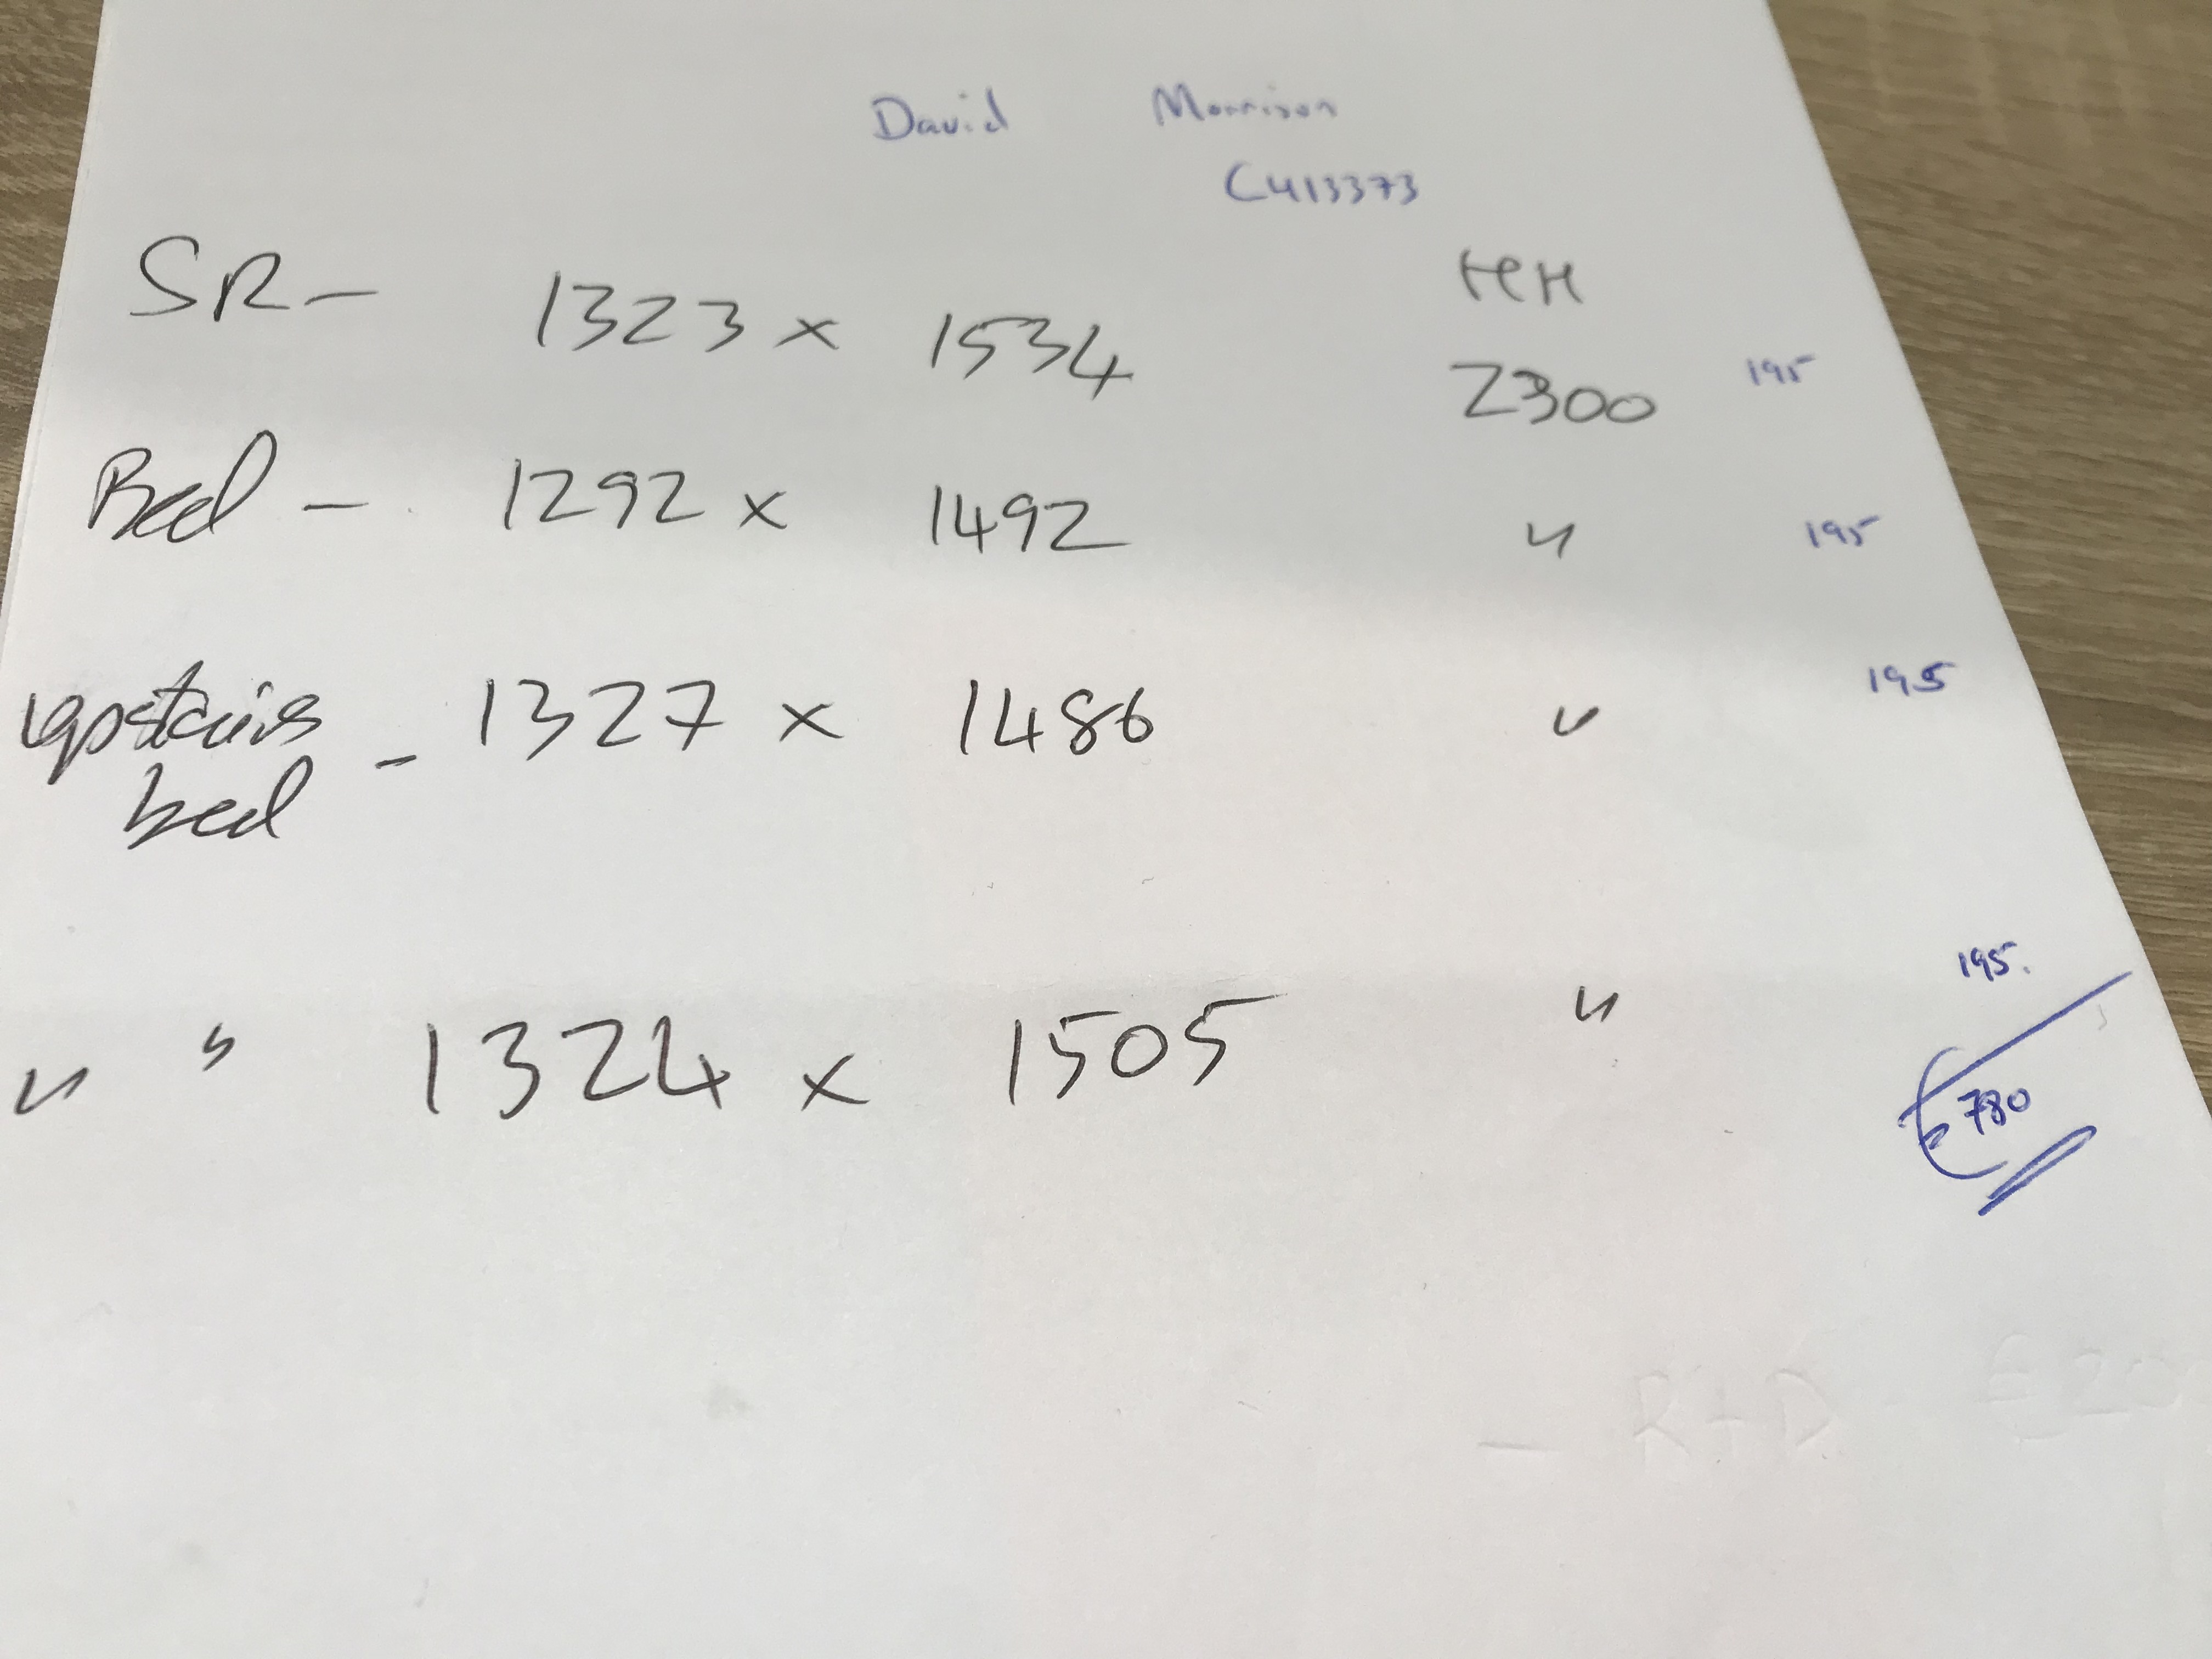 David Morrison
CU13373
SR - 1323 x 1534 HH
Z300 195
Bed - 1292 x 1492 " 195
upstairs bed - 1327 x 1486 " 195
" " 1324 x 1505 " 195.
€780
- R+D